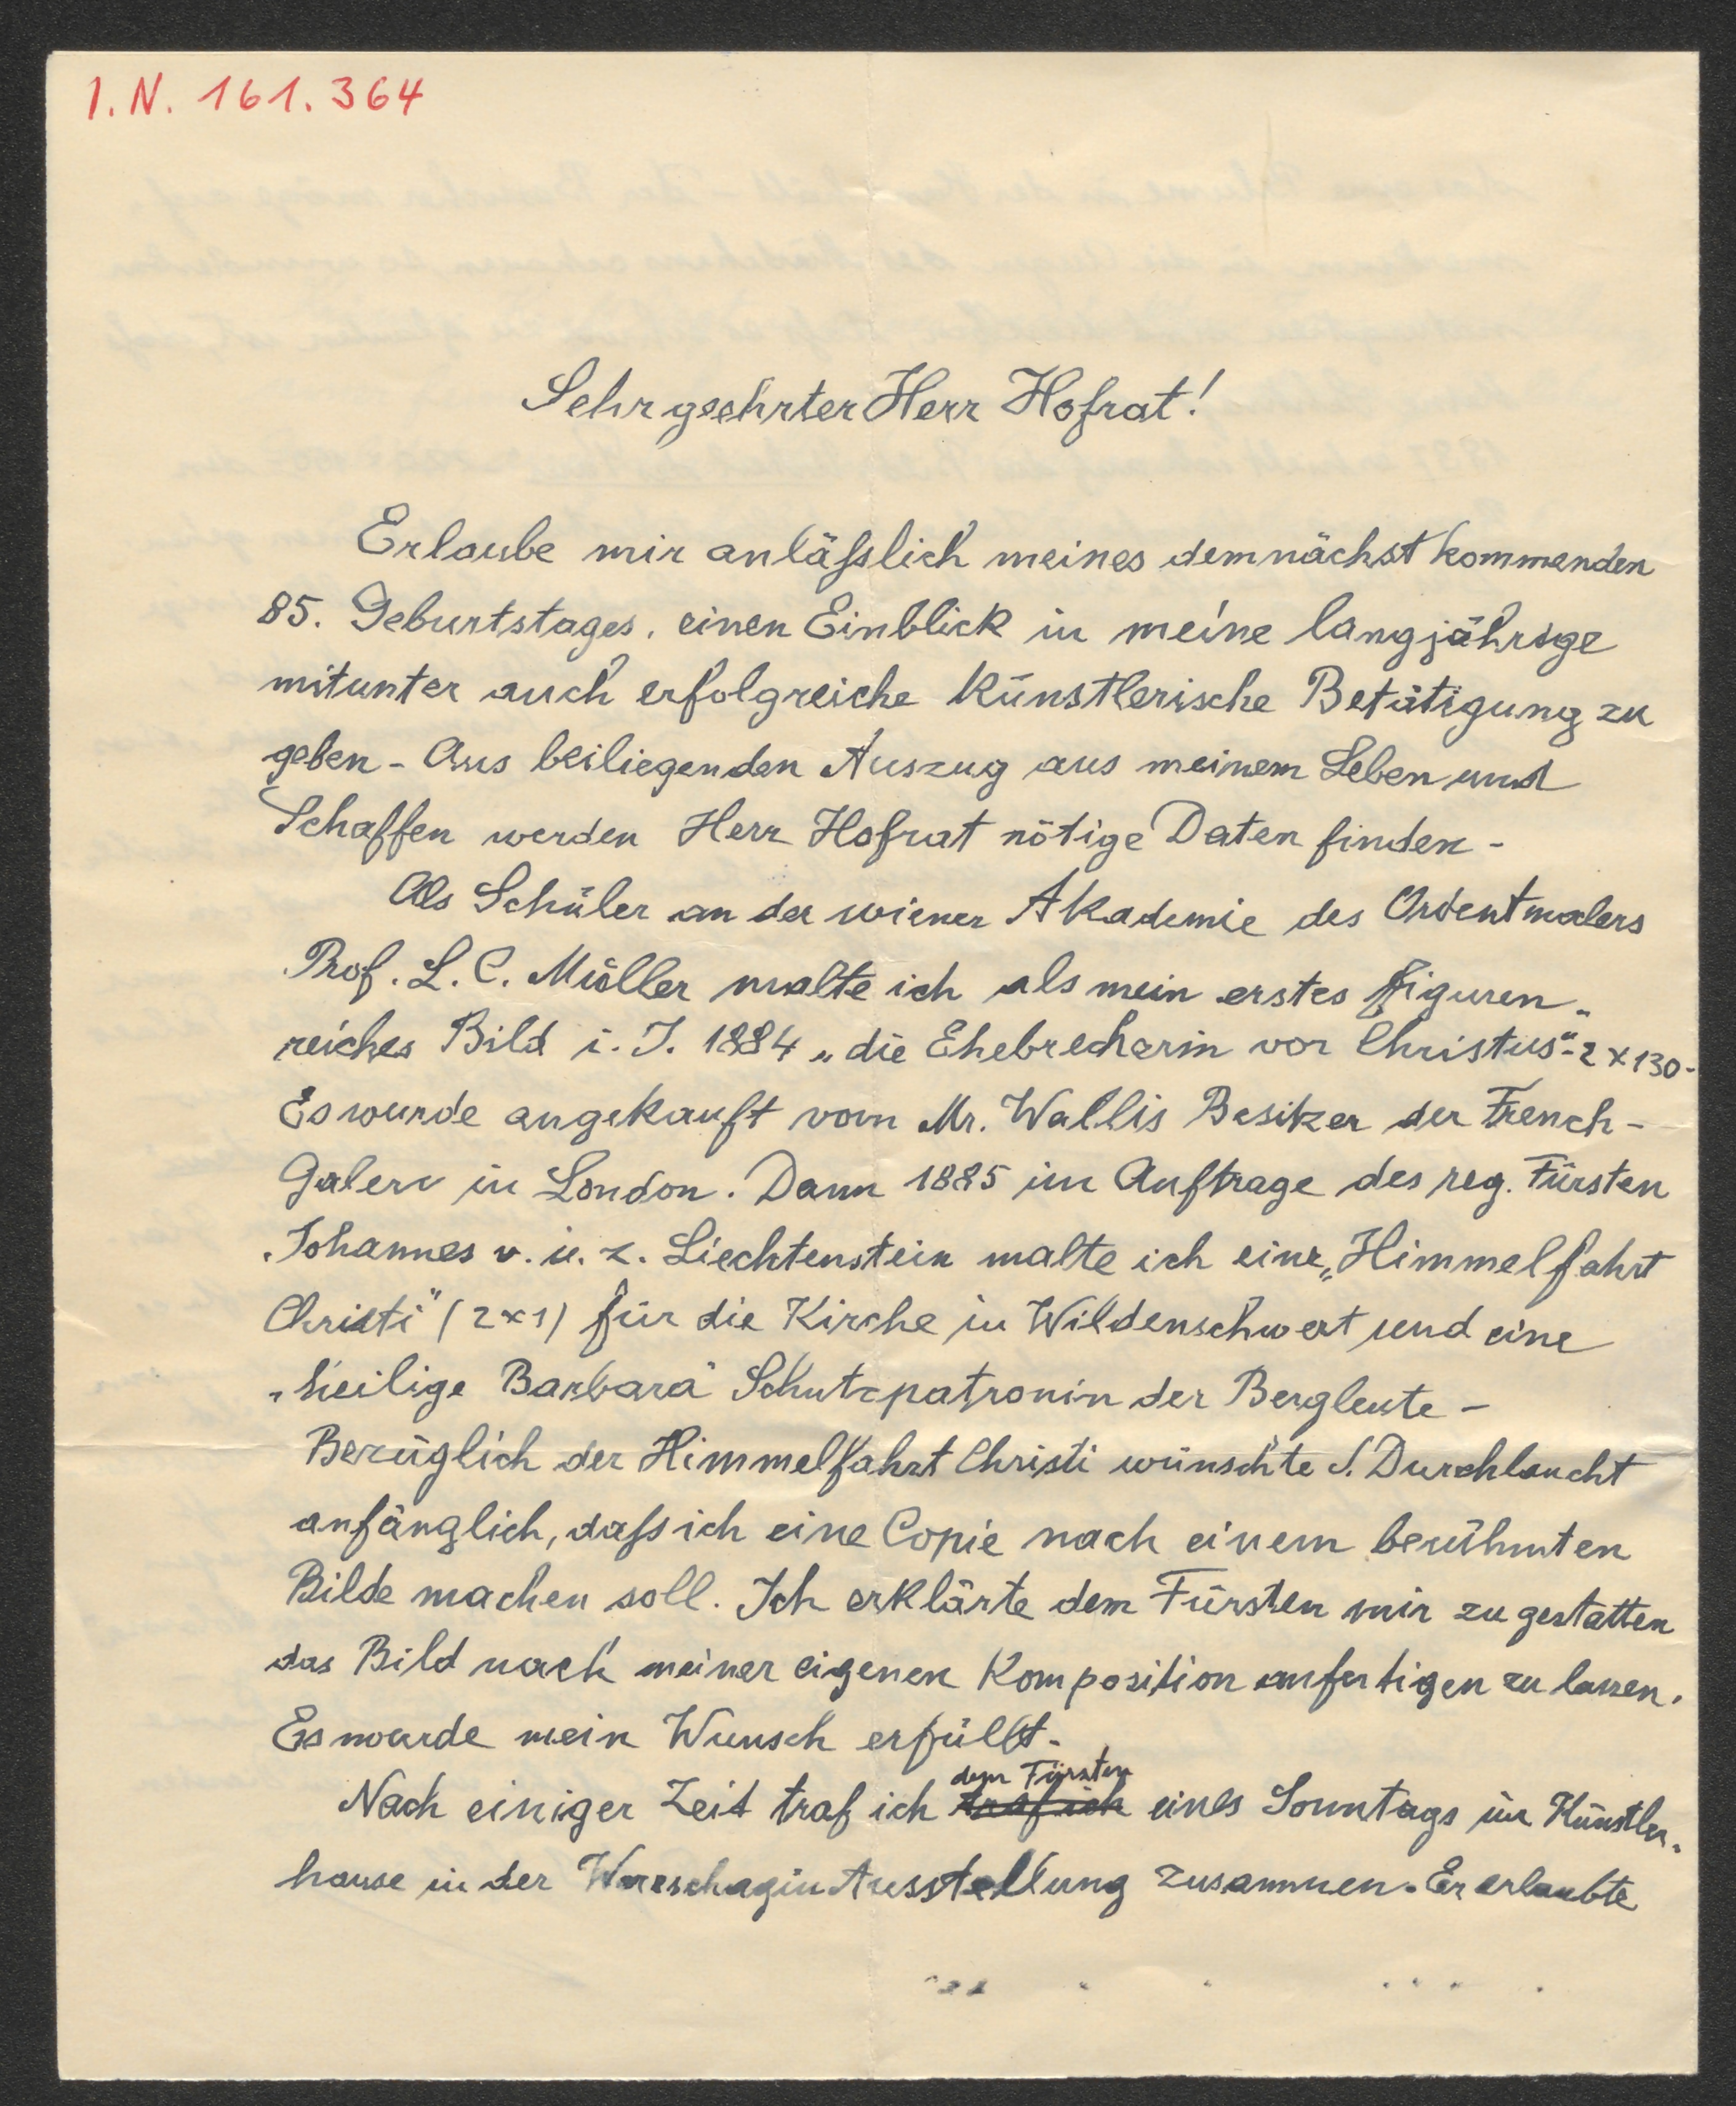 I.N. 161.364
Sehr geehrter Herr Hofrat!
Erlaube mir anläßlich meines demnächst kommenden
85. Geburtstages, einen Einblick in meine langjährige
mitunter auch erfolgreiche künstlerische Betätigung zu
geben - Aus beiliegenden Auszug aus meinem Leben und
Schaffen werden Herr Hofrat nötige Daten finden -
Als Schüler an der wiener Akademie des Orientmalers
Prof. L. C. Müller malte ich als mein erstes figuren-
reiches Bild i. J. 1884 „die Ehebrecherin vor Christus“ - 2 x 130 -
Es wurde angekauft vom Mr. Wallis Besitzer der French-
Galery in London. Dann 1885 im Auftrage des reg. Fürsten
Johannes v. u. z. Liechtenstein malte ich eine „Himmelfahrt
Christi“ (2x1) für die Kirche in Wildenschwert und eine
„heilige Barbara“ Schutzpatronin der Bergleute -
Bezüglich der Himmelfahrt Christi wünschte S. Durchlaucht
anfänglich, daß ich eine Copie nach einem berühmten
Bilde machen soll. Ich erklärte dem Fürsten mir zu gestatten
das Bild nach meiner eigenen Komposition anfertigen zu lassen.
Es wurde mein Wunsch erfüllt.
Nach einiger Zeit traf ich traf ich dem Fürsten eines Sonntags im Künstler-
hause in der Wereschagin Ausstellung zusammen. Er erlaubte